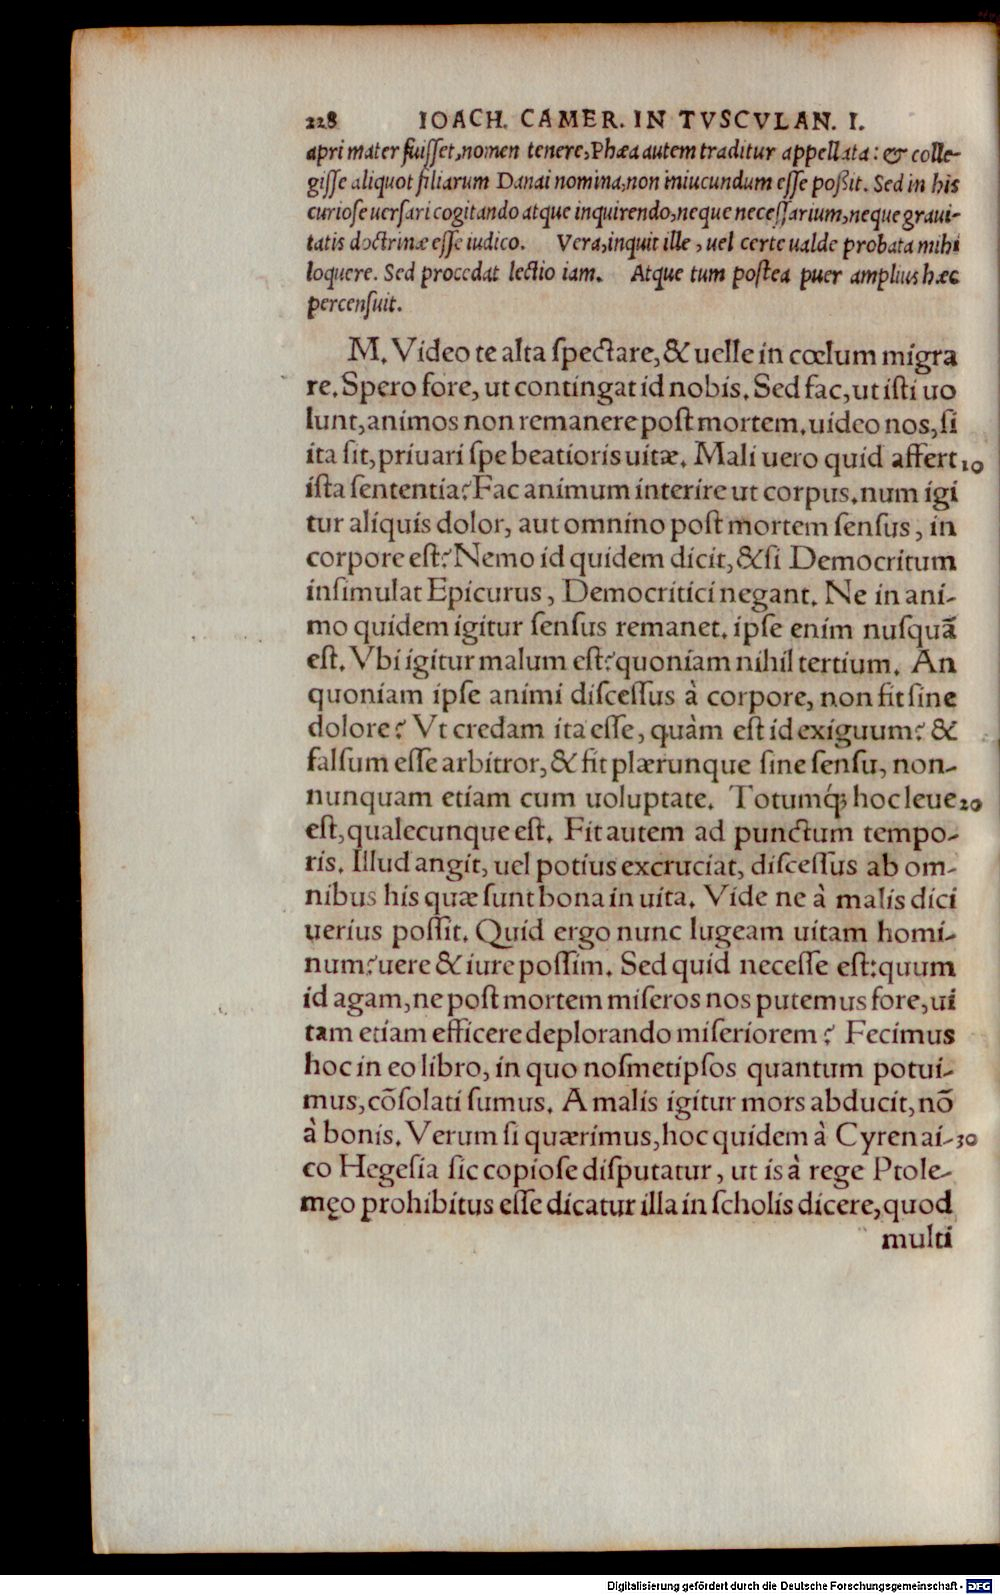 228 IOACH. CAMER. IN TVSCVLAN. I.
apri mater fuiſſet, nomen tenere, Phæa autem traditur appellata: & colle-
giſſe aliquot filiarum Danai nomina, non iniucundum eſſe poßit. Sed in his
curioſe uerſari cogitando atque inquirendo, neque neceſſarium, neque graui-
tatis doctrinæ eſſe iudico. Vera, inquit ille, uel certe ualde probata mihi
loquere. Sed procedat lectio iam. Atque tum poſtea puer amplius hæc
percenſuit.
M. Video te alta ſpectare, & uelle in cœlum migra
re. Spero fore, ut contingat id nobis. Sed fac, ut iſti uo
lunt, animos non remanere poſt mortem. uideo nos, ſi
ita ſit, priuari ſpe beatioris uitæ. Mali uero quid affert 10
iſta ſententia? Fac animum interire ut corpus. num igi
tur aliquis dolor, aut omnino poſt mortem ſenſus, in
corpore eſt? Nemo id quidem dicit, & ſi Democritum
inſimulat Epicurus, Democritici negant. Ne in ani-
mo quidem igitur ſenſus remanet. ipſe enim nuſquã
eſt. Vbi igitur malum eſt? quoniam nihil tertium. An
quoniam ipſe animi diſceſſus à corpore, non fit ſine
dolore? Vt credam ita eſſe, quàm eſt id exiguum? &
falſum eſſe arbitror, & fit plærunque ſine ſenſu, non-
nunquam etiam cum uoluptate. Totumq́; hoc leue 20
eſt, qualecunque eſt. Fit autem ad punctum tempo-
ris. Illud angit, uel potius excruciat, diſceſſus ab om-
nibus his quæ ſunt bona in uita. Vide ne à malis dici
uerius poſſit. Quid ergo nunc lugeam uitam homi-
num? uere & iure poſſim. Sed quid neceſſe eſt: quum
id agam, ne poſt mortem miſeros nos putemus fore, ui
tam etiam efficere deplorando miſeriorem? Fecimus
hoc in eo libro, in quo noſmetipſos quantum potui-
mus, cõſolati ſumus. A malis igitur mors abducit, nõ
à bonis. Verum ſi quærimus, hoc quidem à Cyrenai- 30
co Hegeſia ſic copioſe diſputatur, ut is à rege Ptole-
męo prohibitus eſſe dicatur illa in ſcholis dicere, quod
multi
Digitalisierung gefördert durch die Deutsche Forschungsgemeinschaft - DFG